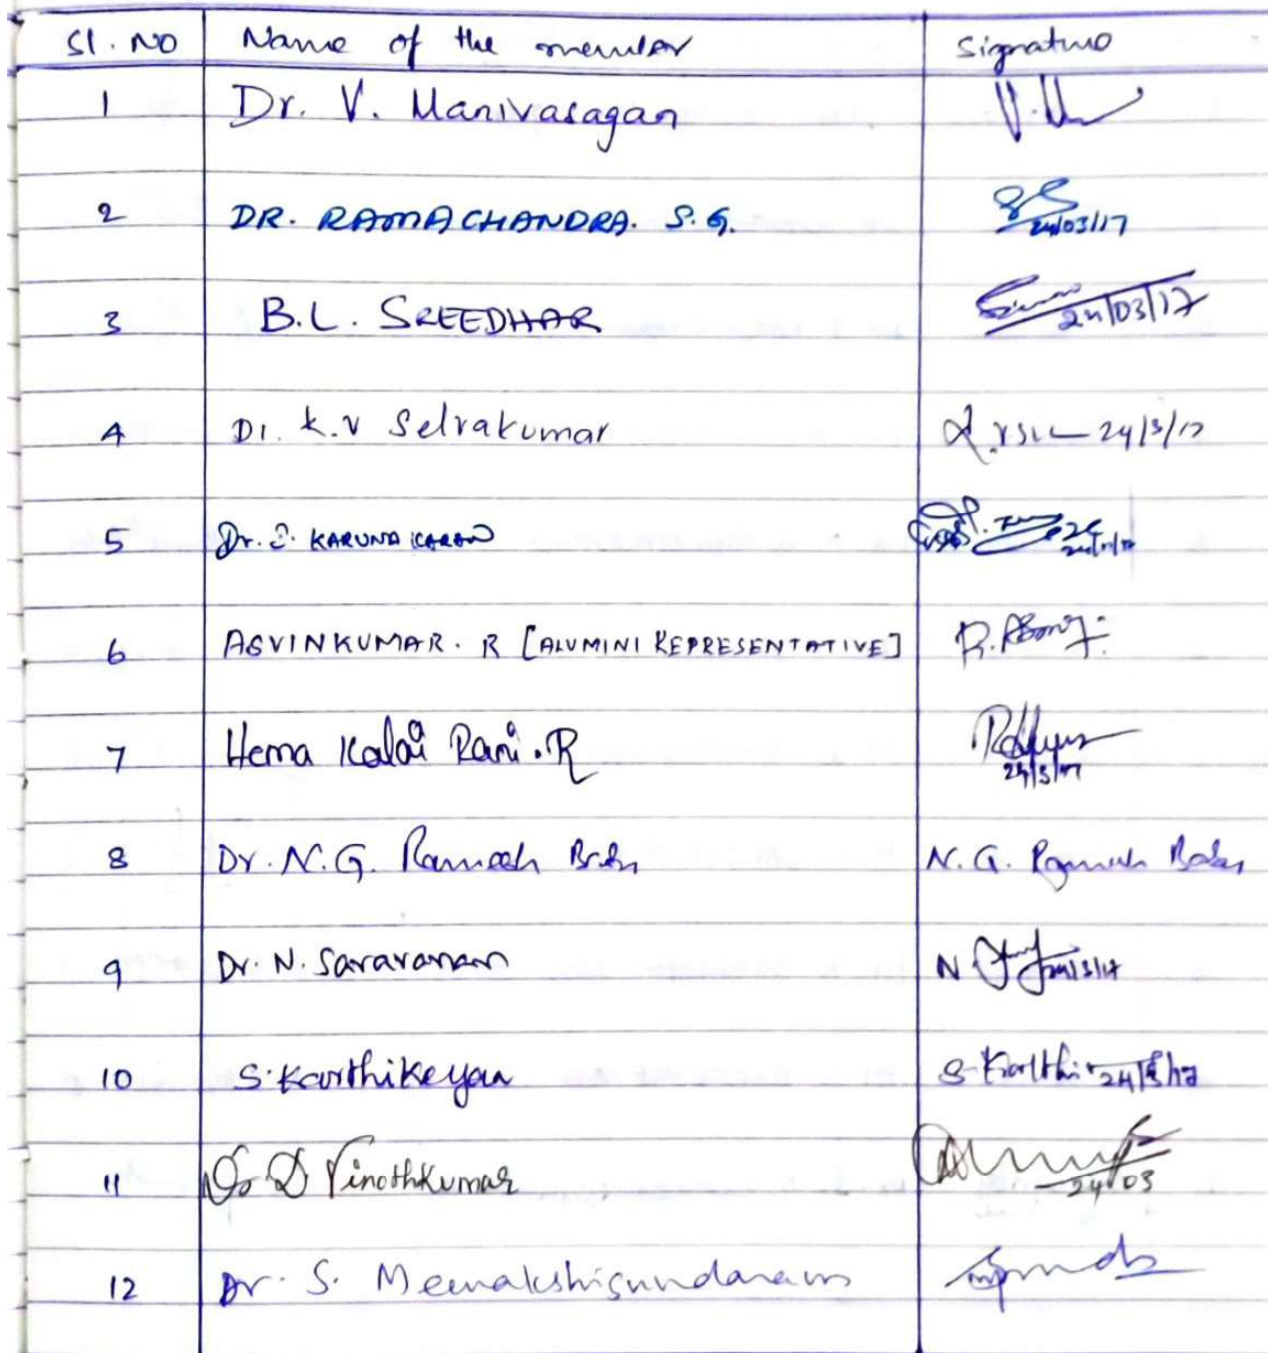 Sl. No Name of the member Signature
1 Dr. V. Manivasagan
2 DR. RAMACHANDRA. S. G.
24/03/17
3 B.L. SREEDHAR 24/03/17
4 Dr. K.V Selvakumar 24/3/17
5 Dr. KARUNAKARAN
6 ASVINKUMAR. R [ALUMINI REPRESENTATIVE]
7 Hema Kalai Rani. R
24/3/17
8 Dr. N.G. Ramesh Babu N. G. Ramesh Babu
9 Dr. N. Saravanan N 24/3/17
10 S. Karthikeyan S. Karthi 24/3/17
11 Dr D Vinothkumar
24/03
12 Dr. S. Meenakshisundaram